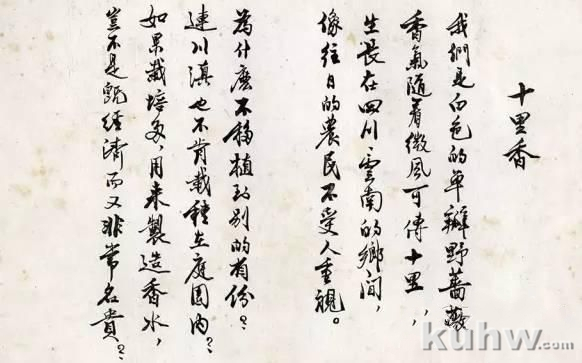 十里香
我們是白色的單瓣野薔薇
香氣隨着微風可傳十里，
生長在四川、雲南的鄉間，
像往日的農民不受人重視。
為什麽不移植到別的省份？
連川滇也不肯栽種在庭園内？
如果栽培多，用来製造香水，
豈不是既經濟而又非常名貴？
kuhw.com